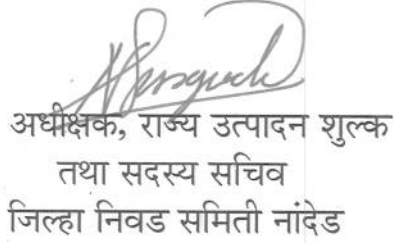 अधीक्षक, राज्य उत्पादन शुल्क
तथा सदस्य सचिव
जिल्हा निवड समिती नांदेड